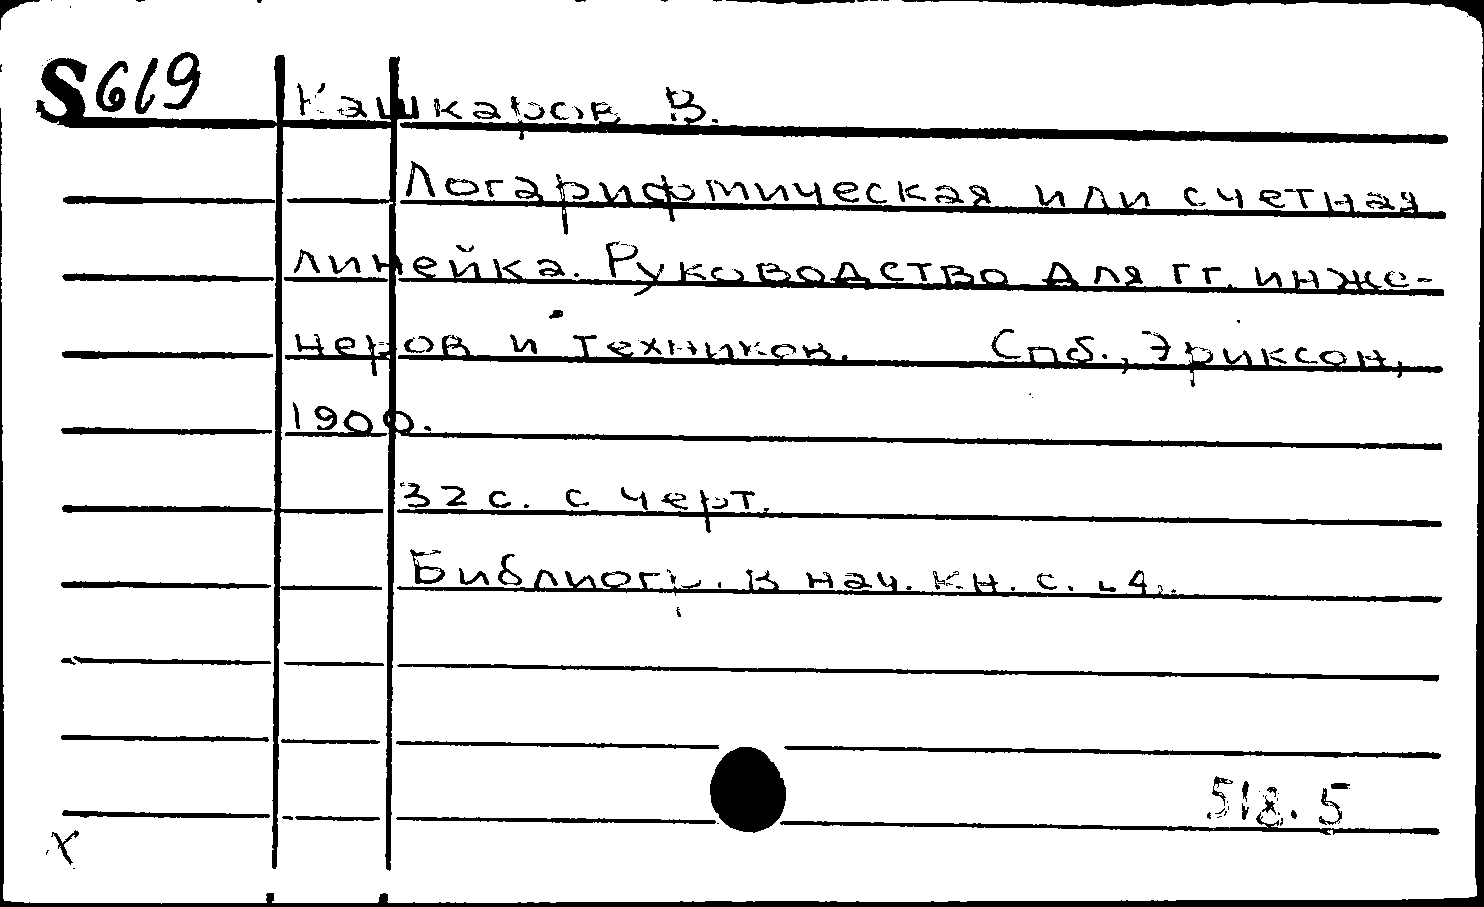 S619
Кашкаров В.
Логарифмическая или счетная
линейка. Руководство для гг. инже-
неров и техников. Спб., Эриксон,
1900.
32 с. с черт.
Библиогр. в нач. кн. с.
518.5
x